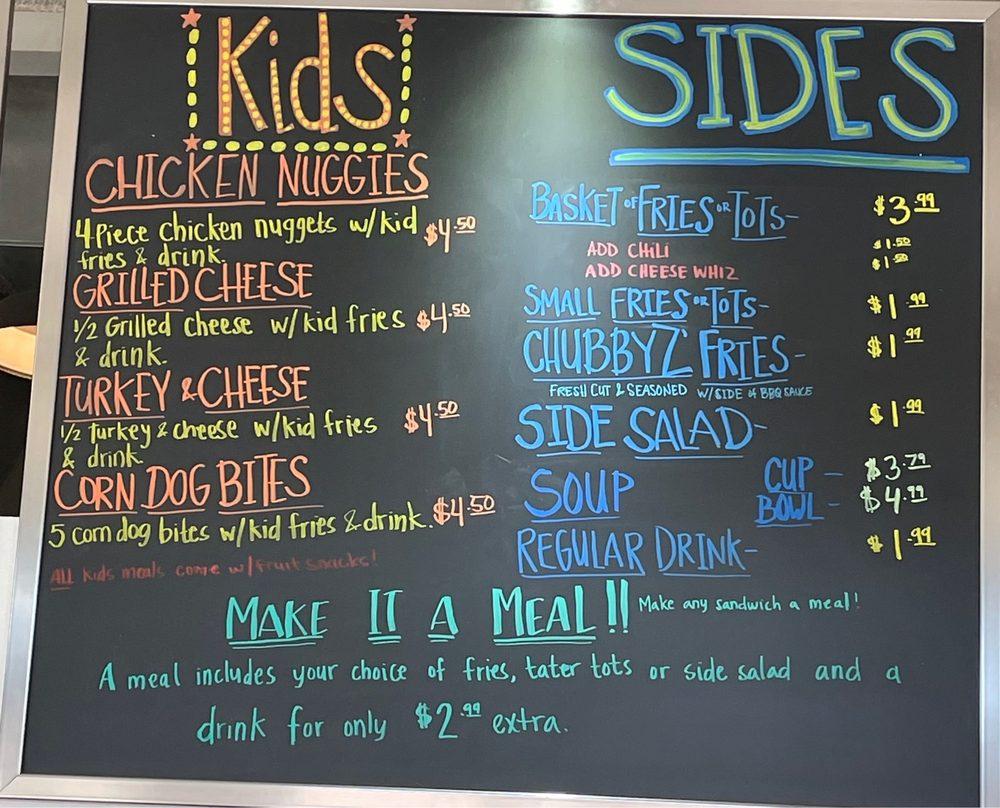 Kids
CHICKEN NUGGIES
4 Piece chicken nuggets w/kid $4.50
fries & drink.
GRILLED CHEESE
1/2 Grilled cheese w/kid fries $4.50
& drink.
TURKEY & CHEESE
1/2 turkey & cheese w/kid fries $4.50
& drink.
CORN DOG BITES
5 corn dog bites w/kid fries & drink. $4.50
All kids meals come w/fruit snacks!
SIDES
BASKET OF FRIES OR TOTS- $3.99
ADD CHILI $1.50
ADD CHEESE WHIZ $1.50
SMALL FRIES OR TOTS- $1.99
CHUBBYZ' FRIES- $1.99
FRESH CUT & SEASONED W/SIDE OF BBQ SAUCE
SIDE SALAD- $1.99
SOUP CUP - $3.79
BOWL - $4.99
REGULAR DRINK- $1.99
MAKE IT A MEAL!! Make any sandwich a meal!
A meal includes your choice of fries, tater tots or side salad and a
drink for only $2.99 extra.